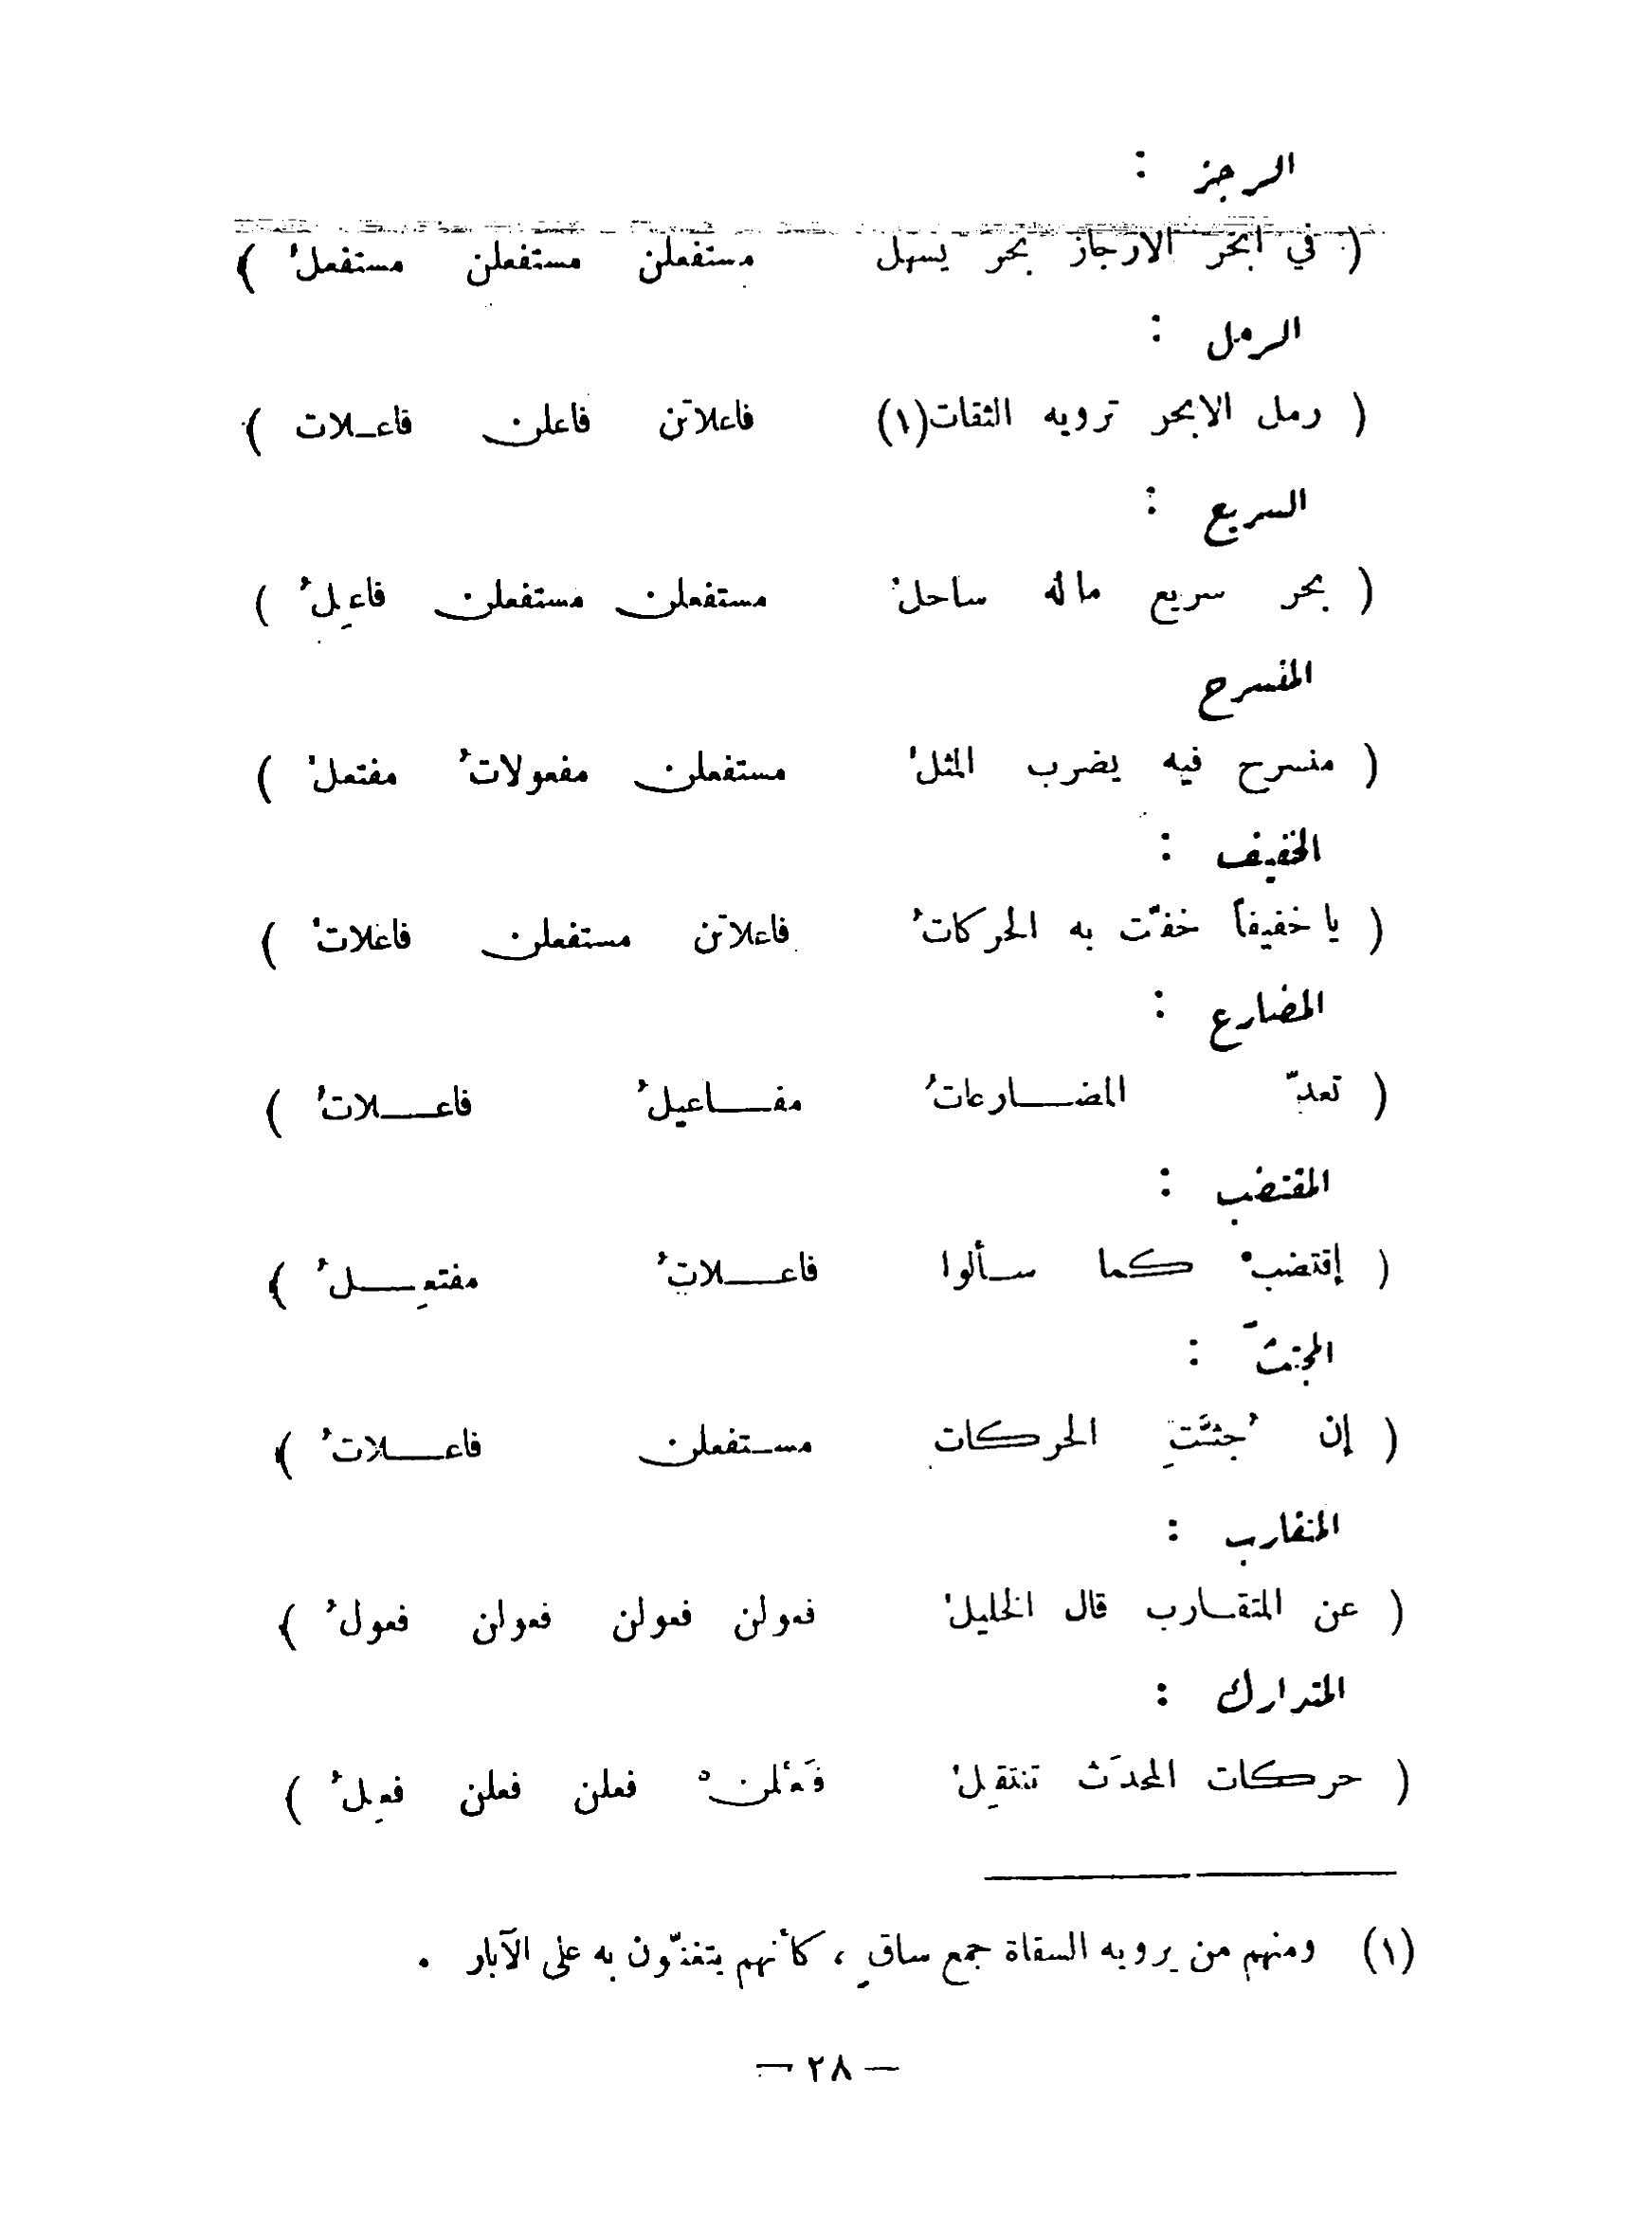 الرجز :
( في ابحر الارجاز بحر يسهل مستفعلن مستفعلن مستفعلُ )
الرمل :
( رمل الابحر ترويه الثقات(١) فاعلاتن فاعلن فاعـلات )
السريع :
( بحر سريع ماله ساحلُ مستفعلن مستفعلن فاعِلُ )
المنسرح
( منسرح فيه يضرب المثلُ مستفعلن مفعولاتُ مفتعلُ )
الخفيف :
( يا خفيفاً خفّت به الحركاتُ فاعلاتن مستفعلن فاعلاتُ )
المضارع :
( تعدّ المضـــارعاتُ مفـــاعيلُ فاعـــلاتُ )
المقتضب :
( إقتضبْ كما سـألوا فاعـــلاتُ مفتعِـــلُ )
المجتثّ :
( إن جُثَّتِ الحركات مسـتفعلن فاعـــلاتُ )
المتقارب :
( عن المتقـارب قال الخليلُ فعولن فعولن فعولن فعولُ )
المتدارك :
( حركات المحدَث تنتقِلُ فَعْلنْ فعلن فعلن فعِلُ )
(١) ومنهم من يرويه السقاة جمع ساقٍ ، كأنهم يتغنّون به على الآبار .
— ٢٨ —